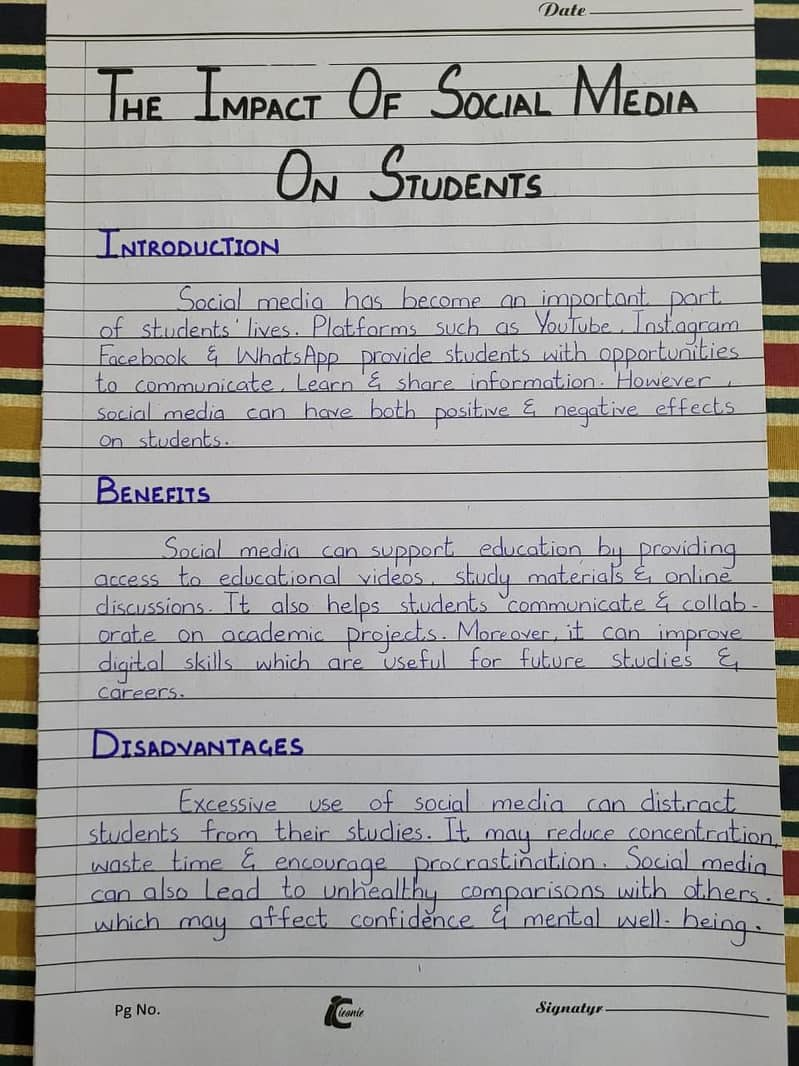 Date
THE IMPACT OF SOCIAL MEDIA
ON STUDENTS
INTRODUCTION
Social media has become an important part
of students' lives. Platforms such as YouTube, Instagram
Facebook & WhatsApp provide students with opportunities
to communicate, Learn & share information. However,
social media can have both positive & negative effects
on students.
BENEFITS
Social media can support education by providing
access to educational videos, study materials & online
discussions. It also helps students communicate & collab-
orate on academic projects. Moreover, it can improve
digital skills which are useful for future studies &
careers.
DISADVANTAGES
Excessive use of social media can distract
students from their studies. It may reduce concentration,
waste time & encourage procrastination. Social media
can also Lead to unhealthy comparisons with others.
which may affect confidence & mental well-being.
Pg No.
iconic
Signatyr